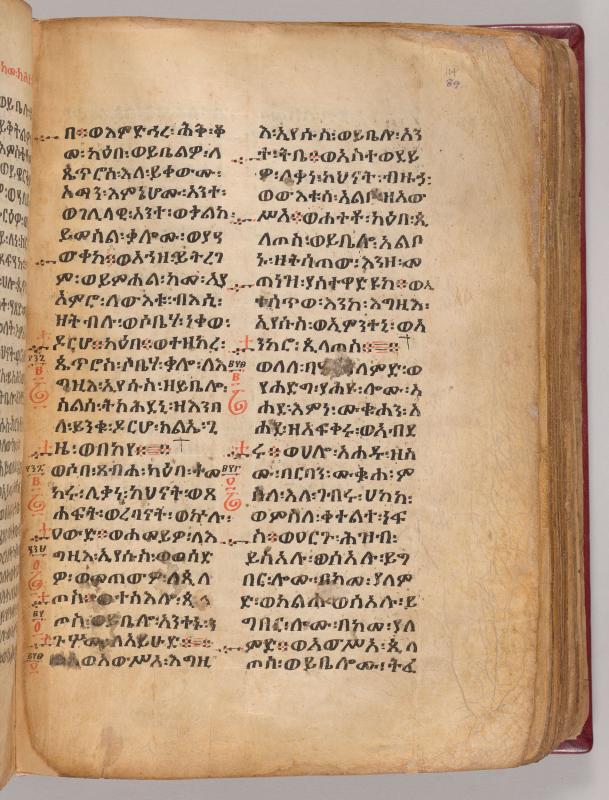 በ፡ወእምድኅረ፡ሕቅ፡ቆ
ሙ፡ካዕበ፡ወይቤልዎ፡ለ
ጴጥሮስ፡እለ፡ይቀውሙ፡
አማን፡እምኔሆሙ፡አንተ፡
ወገሊላዊ፡አንተ፡ወቃልከ፡
ይመስል፡ቃሎሙ፡ወያ
ውቀከ፡ወአኀዘ፡ይትረገ
ም፡ወይምሐል፡ከመ፡ኢያ
አምሮ፡ለውእቱ፡ብእሲ፡
ዘትብሉ፡ወሶቤሃ፡ነቀወ፡
ዶርሆ፡ካዕበ፡ወተዘከረ፡
ጴጥሮስ፡ሶቤሃ፡ቃሎ፡ለእ
ግዚእ፡ኢየሱስ፡ዘይቤሎ፡
ስልሰ፡ትክሕደኒ፡ዘእንበ
ለ፡ይንቁ፡ዶርሆ፡ክልኤ፡ጊ
ዜ፡ወበከየ፨
ወሶበ፡ጸብሐ፡ካዕበ፡ተማ
ከሩ፡ሊቃነ፡ካህናት፡ወጸ
ሐፍት፡ወረባናት፡ወኵሉ፡
ዐውድ፡ወሐመይዎ፡ለእ
ግዚእ፡ኢየሱስ፡ወወሰድ
ዎ፡ወመጠውዎ፡ለጲላ
ጦስ፡ወተስእሎ፡ጲላ
ጦስ፡ወይቤሎ፡አንተኑ፡ን
ጉሦሙ፡ለአይሁድ፨
ወአውሥአ፡እግዚ
እ፡ኢየሱስ፡ወይቤሎ፡አን
ተ፡ትቤ፡ወአስተዋደይ
ዎ፡ሊቃነ፡ካህናት፡ብዙኀ፡
ወውእቱሰ፡አልቦ፡ዘአው
ሥአ፡ወሐተቶ፡ካዕበ፡ጲ
ላጦስ፡ወይቤሎ፡አልቦ
ኑ፡ዘትሰጠው፡እንዘ፡መ
ጠነዝ፡ያስተዋድዩከ፡ወኢ
ተሰጥወ፡እንከ፡እግዚእ፡
ኢየሱስ፡ወኢምንተኒ፡ወአ
ንከሮ፡ጲላጦስ፨
ወለለ፡በዓለ፡ምድ፡ወ
የሐድግ፡ያሕዩ፡ሎሙ፡አ
ሐደ፡እምነ፡ሙቁሐን፡አ
ሐደ፡ዘአፍቀሩ፡ወአብደ
ሩ፡ወሀሎ፡አሐዱ፡ዘስ
ሙ፡በርባን፡ሙቁሕ፡ም
ስለ፡እለ፡ገብሩ፡ሀከከ፡
ወምስለ፡ቀተልተ፡ነፍ
ስ፡ወዐርጉ፡ሕዝብ፡
ይስአሉ፡ወሰአሉ፡ይግ
በር፡ሎሙ፡በከመ፡ያለም
ድ፡ወከልሑ፡ወሰአሉ፡ይ
ግበር፡ሎሙ፡በከመ፡ያለ
ምድ፡ወአውሥአ፡ጲላ
ጦስ፡ወይቤሎሙ፡ትፈ